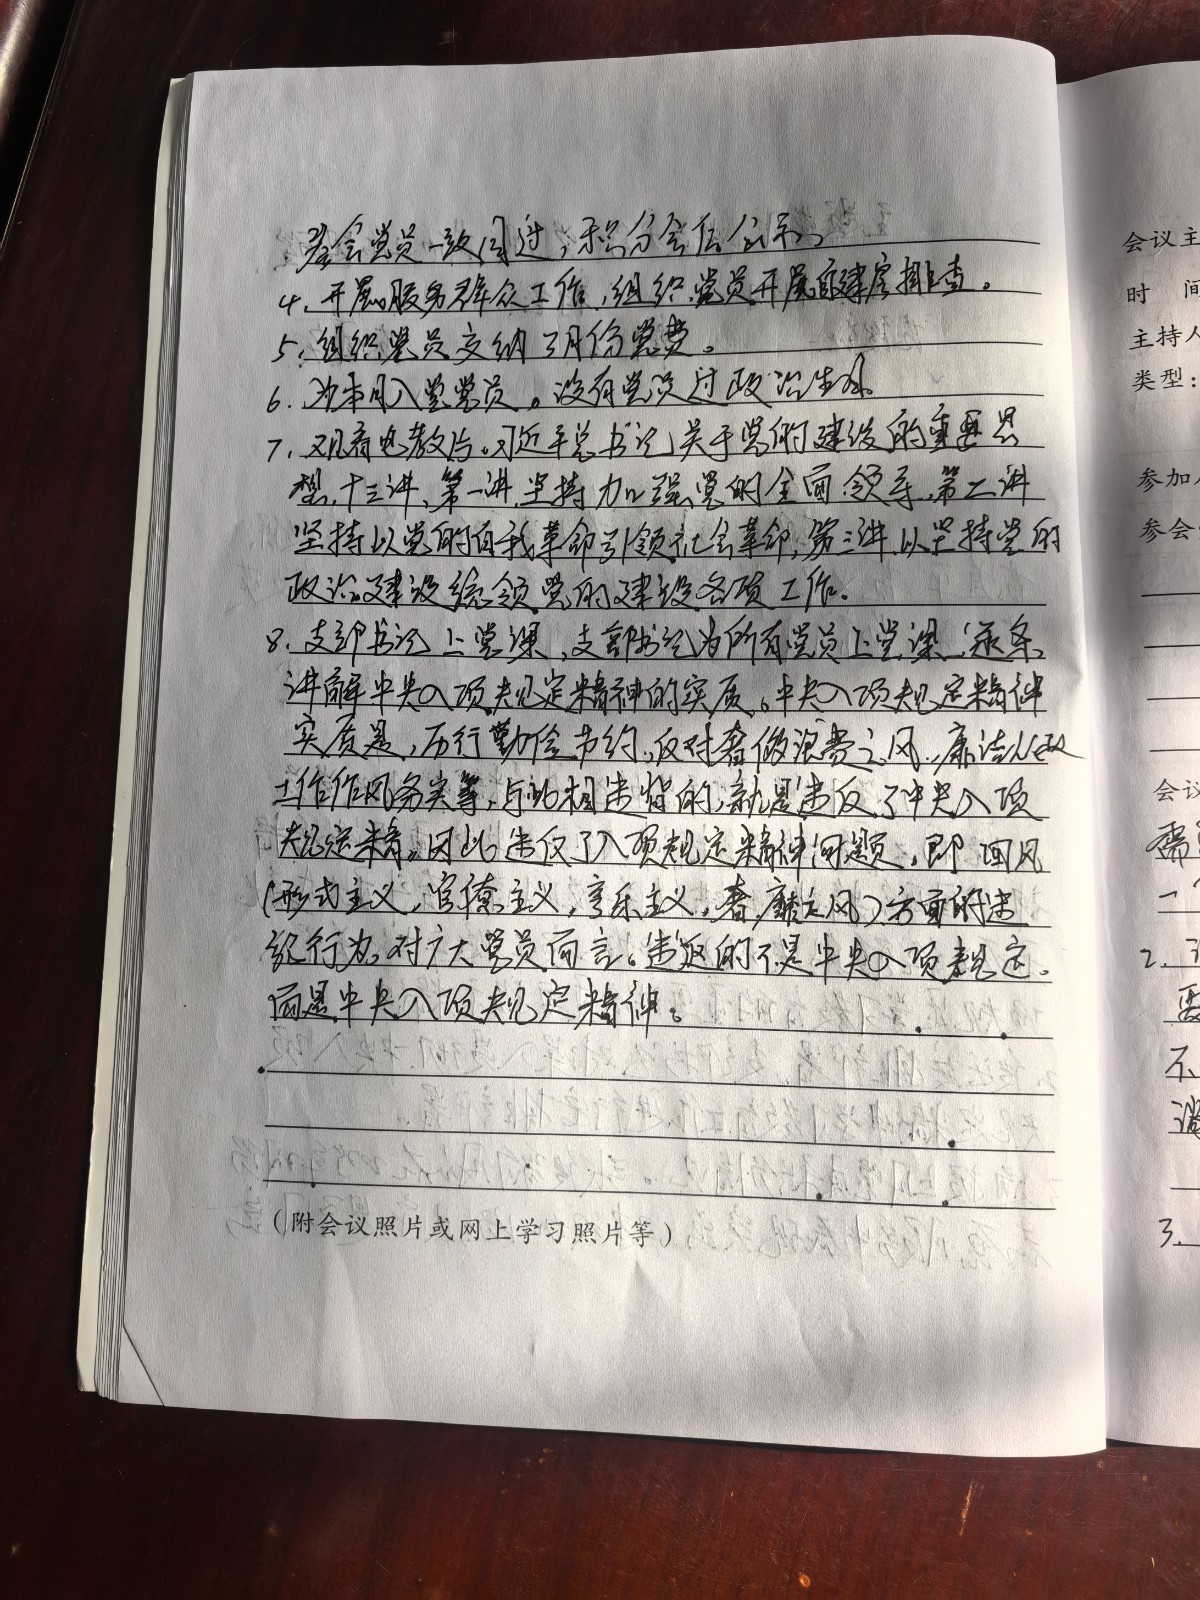 参会党员一致同过，积分会后公示。
4、开展服务群众工作，组织党员开展自建房排查。
5、组织党员交纳3月份党费。
6、为本月入党党员，没有党员过政治生日。
7、观看电教片。习近平总书记关于党的建设的重要思
想，十三讲，第一讲，坚持加强党的全面领导，第二讲
坚持以党的自我革命引领社会革命，第三讲，以坚持党的
政治建设统领党的建设各项工作。
8、支部书记上党课，支部书记为所有党员上党课，逐条
讲解中央八项规定精神的实质。中央八项规定精神
实质是，厉行勤俭节约，反对奢侈浪费之风，廉洁从政
工作作风务实等，与此相违背的，就是违反了中央八项
规定精，因此违反了八项规定精神问题，即四风
（形式主义，官僚主义，享乐主义，奢靡之风）方面的违
纪行为。对广大党员而言。违返的不是中央八项规定，
而是中央八项规定精神。
（附会议照片或网上学习照片等）
会议主
时 间
主持人
类型：
参加人
参会
会议
需
一
2、
要
不
3、